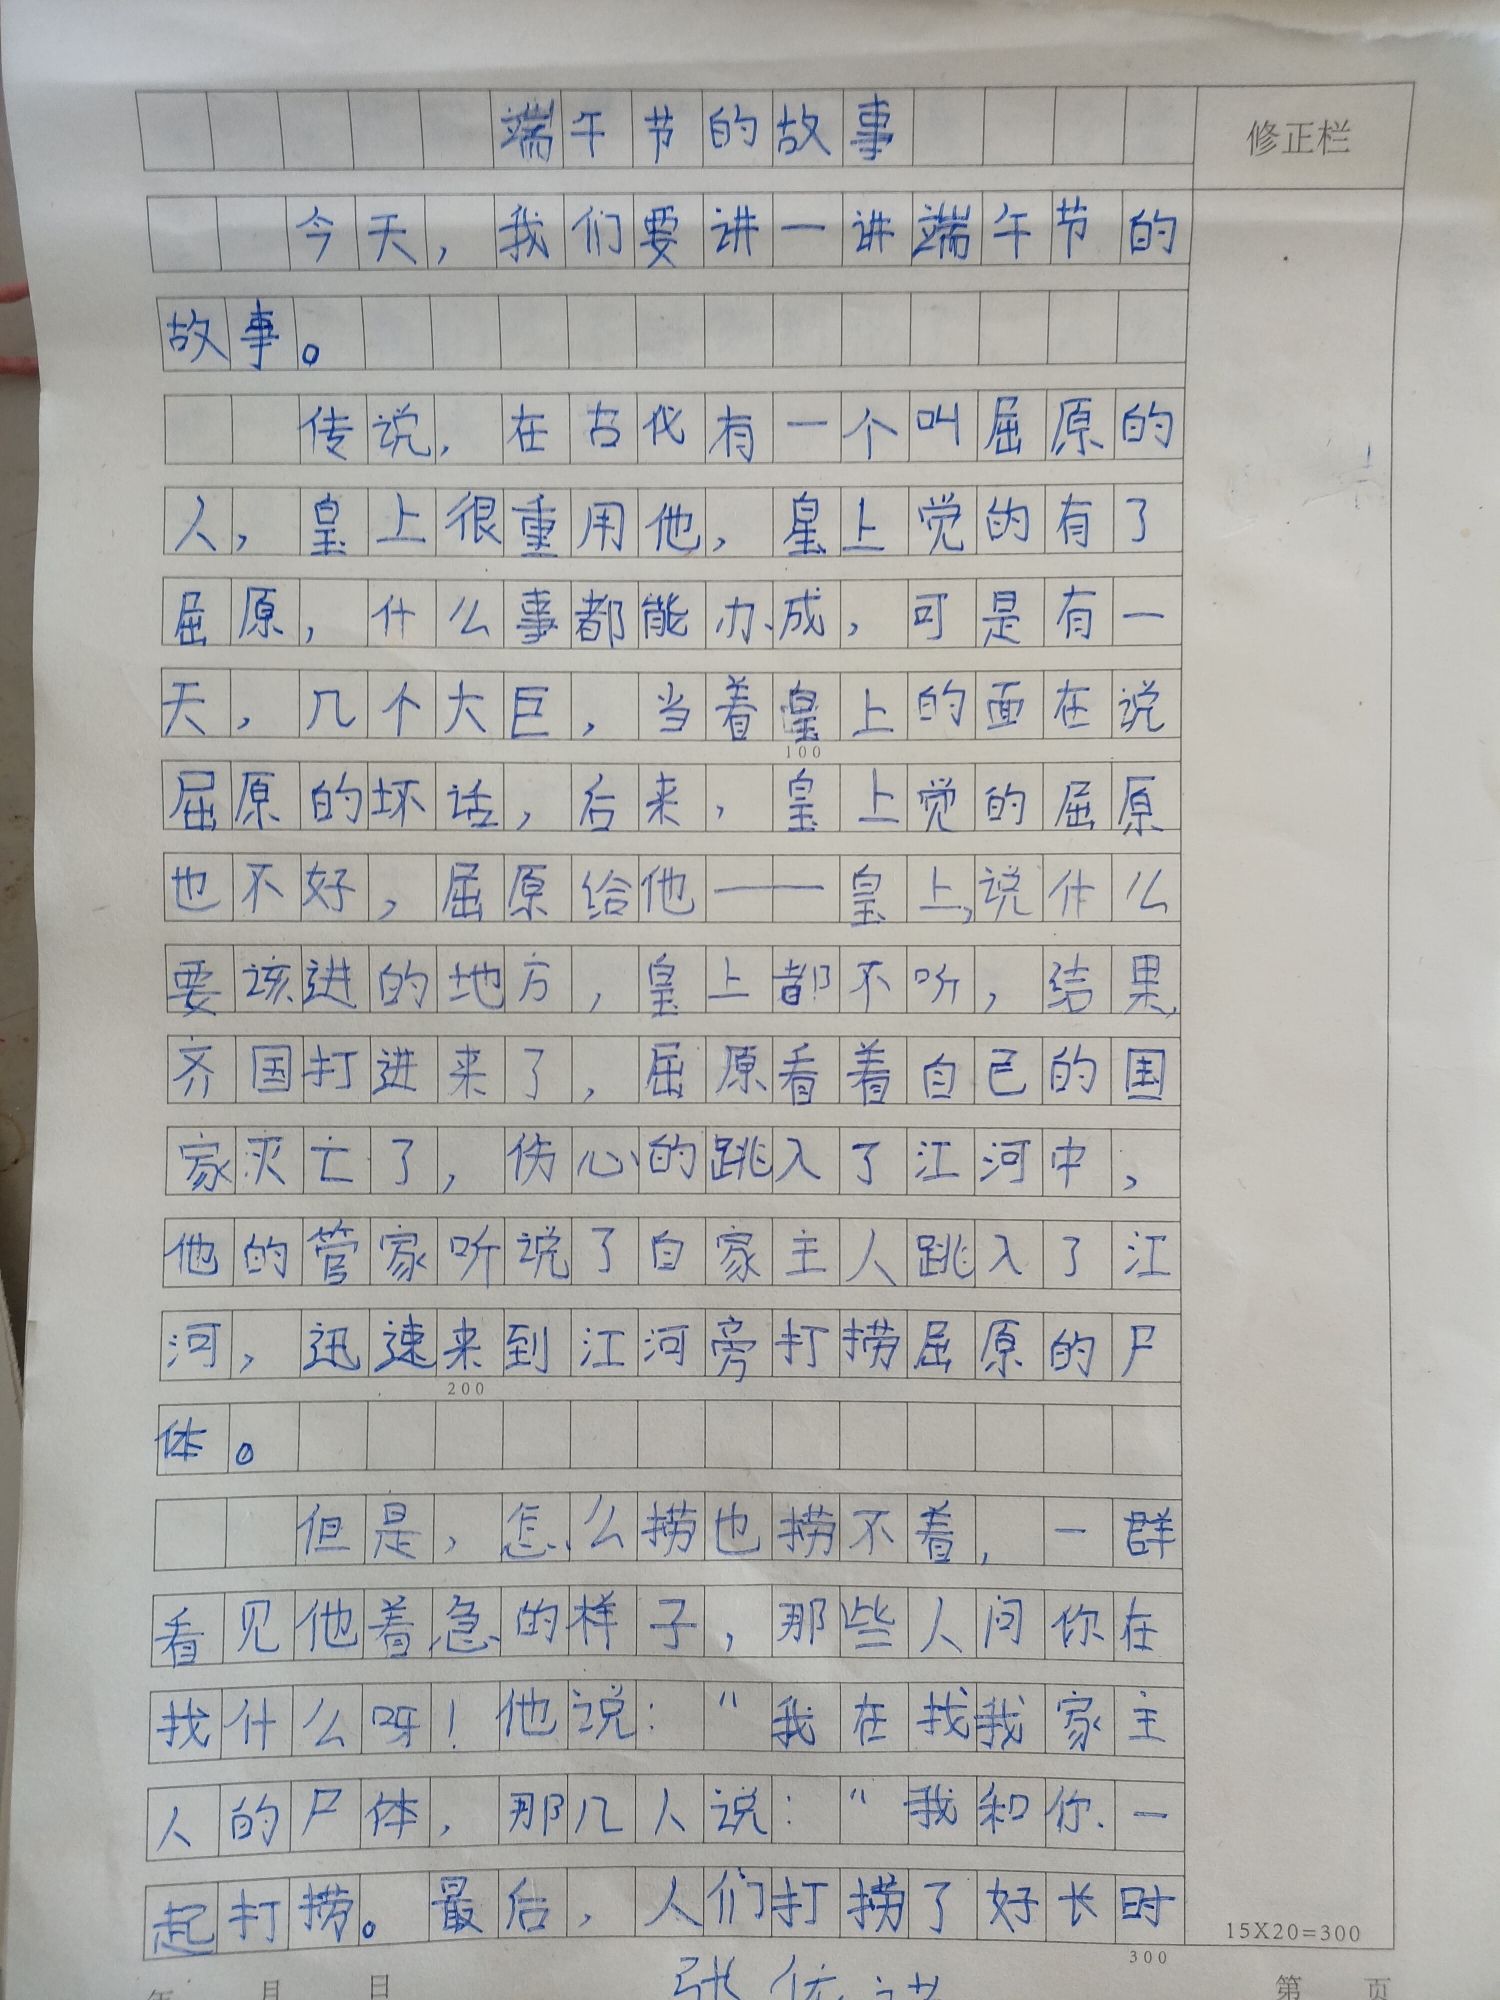 端午节的故事
修正栏
今天，我们要讲一讲端午节的
故事。
传说，在古代有一个叫屈原的
人，皇上很重用他，皇上觉的有了
屈原，什么事都能办成，可是有一
天，几个大巨，当着皇上的面在说
100
屈原的坏话，后来，皇上觉的屈原
也不好，屈原给他——皇上，说什么
要该进的地方，皇上都不听，结果，
齐国打进来了，屈原看着自己的国
家灭亡了，伤心的跳入了江河中，
他的管家听说了自家主人跳入了江
河，迅速来到江河旁打捞屈原的尸
200
体。
但是，怎么捞也捞不着，一群
看见他着急的样子，那些人问你在
找什么呀！他说：“我在找我家主
人的尸体，那几人说：“我和你一
起打捞。最后，人们打捞了好长时
15X20=300
300
年 月 日 第 页